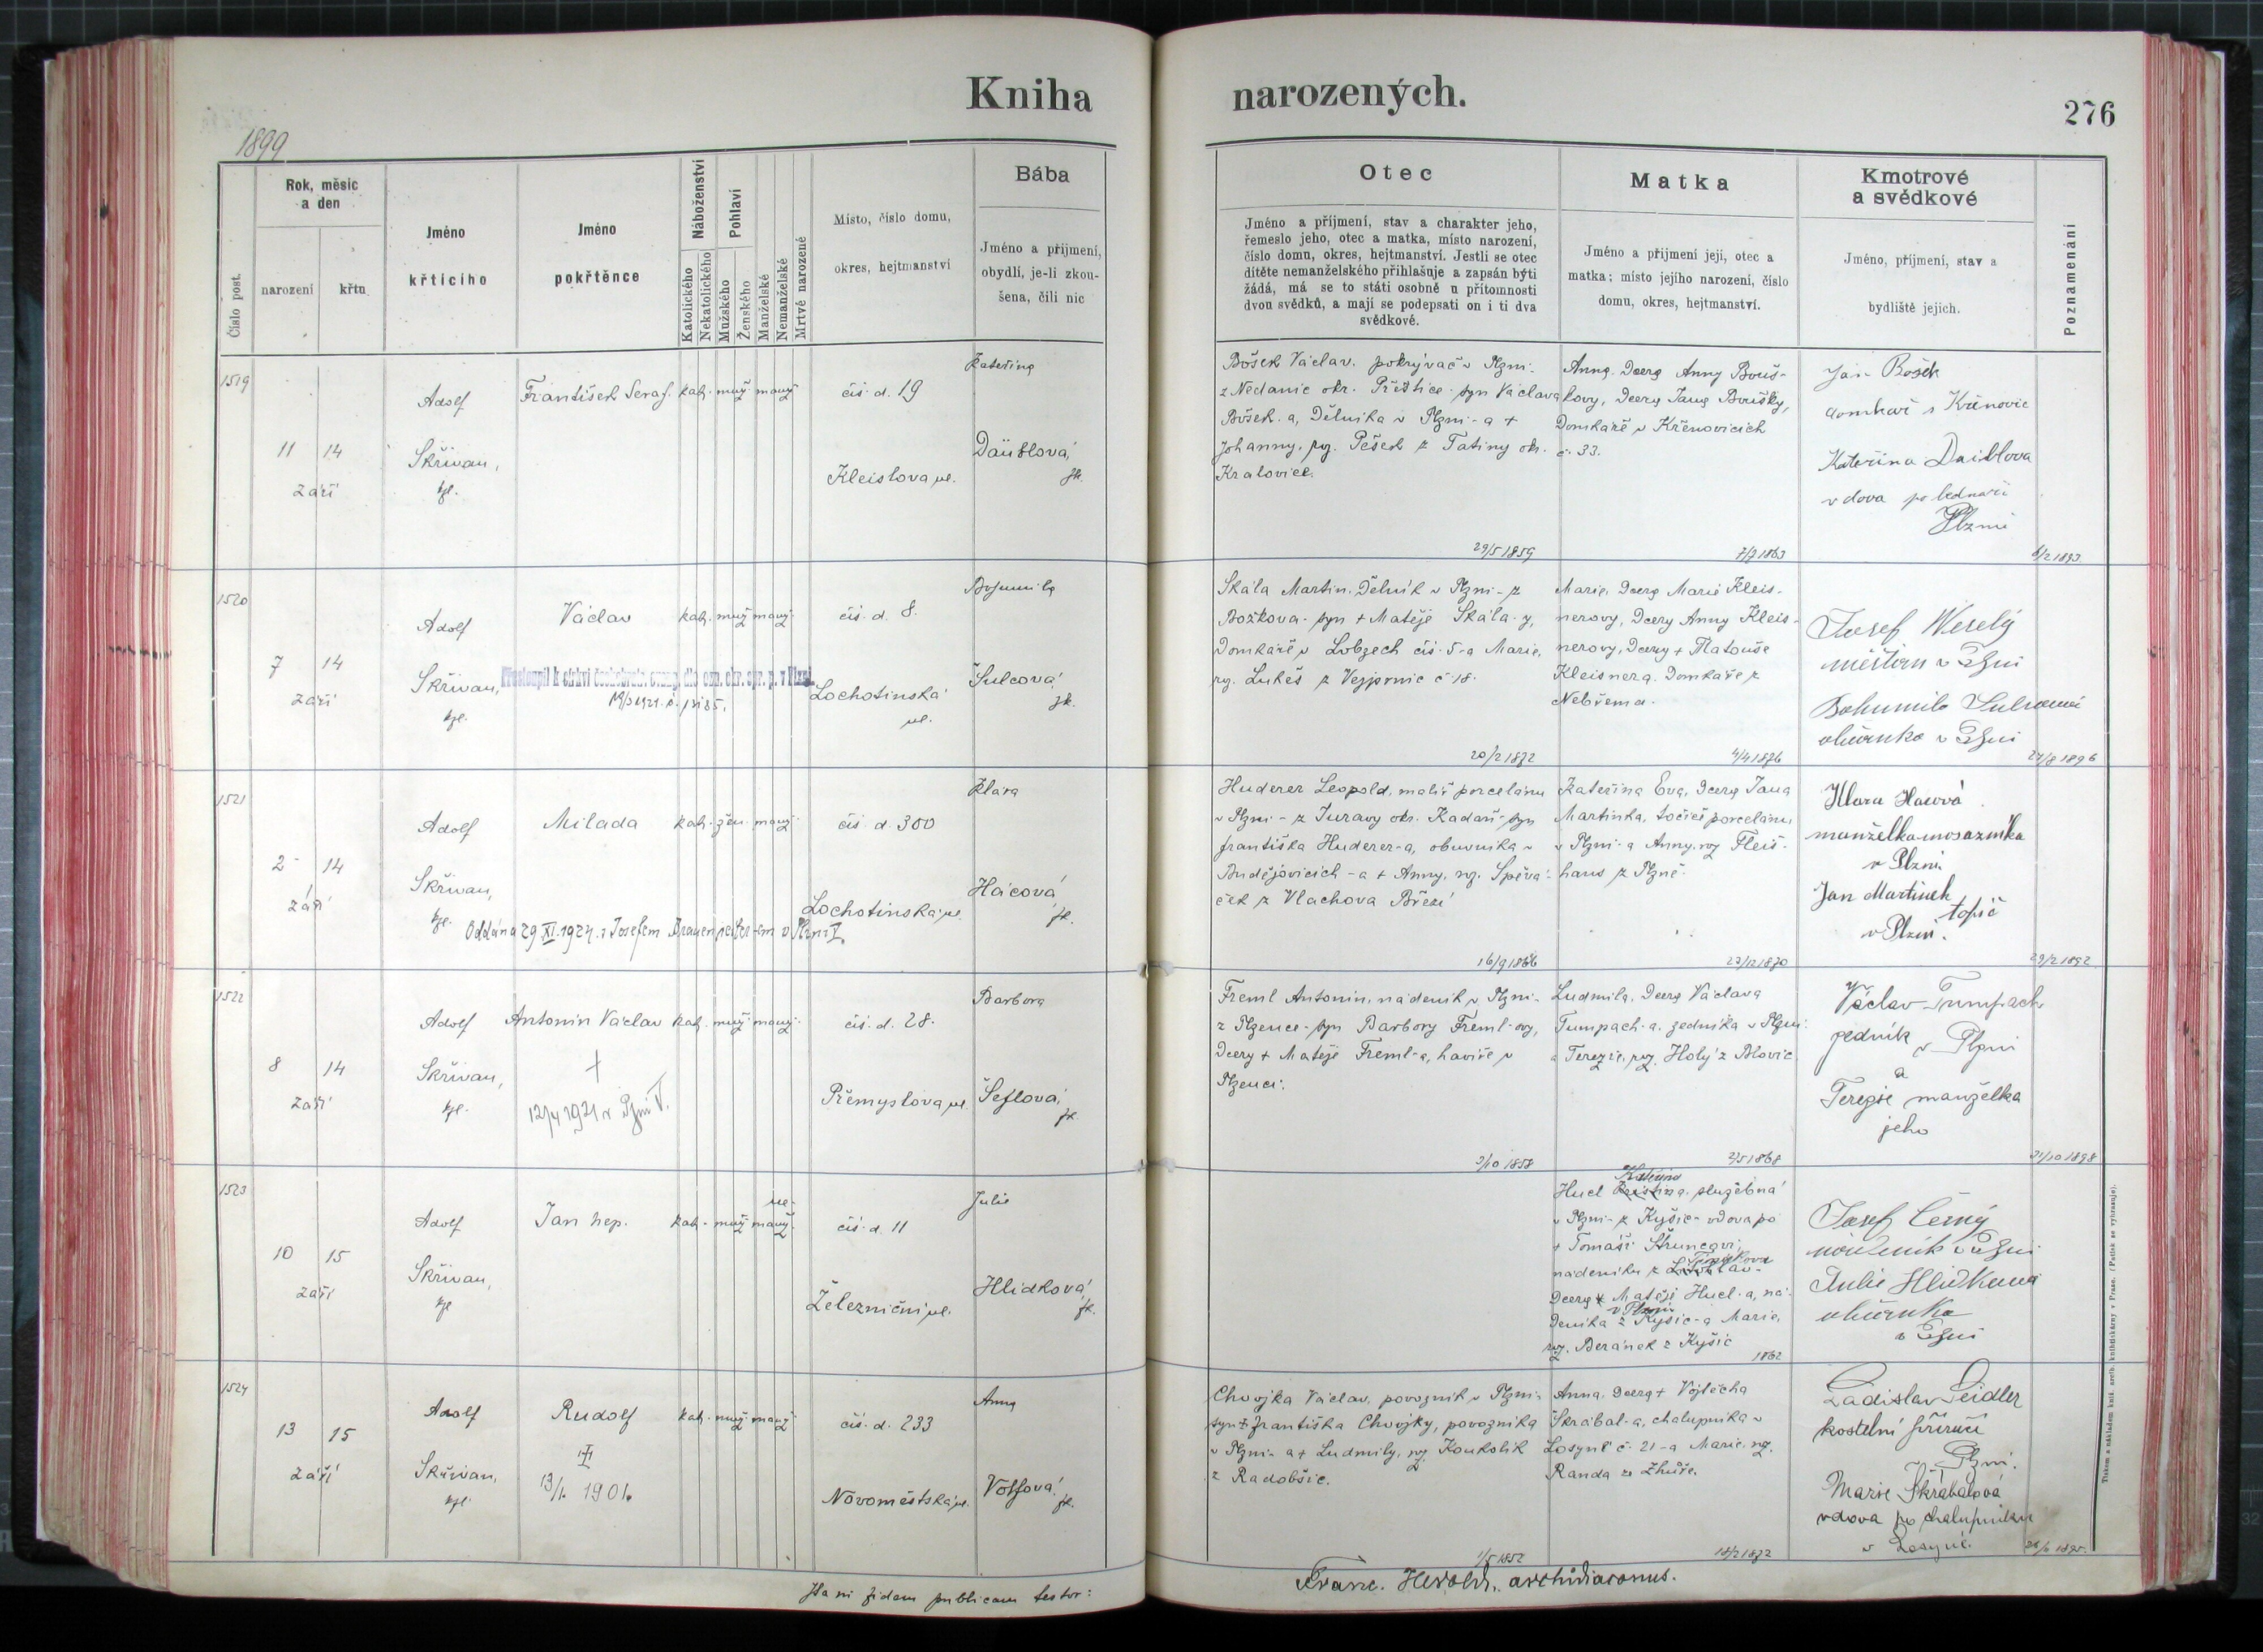 Kniha narozených.
276
1899
Číslo post.
Rok, měsíc
a den
narození
křtu
Jméno
křtícího
Jméno
pokřtěnce
Náboženství
Katolického
Nekatolického
Pohlaví
Mužského
Ženského
Manželské
Nemanželské
Mrtvě narozené
Místo, číslo domu,
okres, hejtmanství
Bába
Jméno a příjmení,
obydlí, je-li zkou-
šena, čili nic
Otec
Jméno a příjmení, stav a charakter jeho,
řemeslo jeho, otec a matka, místo narození,
číslo domu, okres, hejtmanství. Jestli se otec
dítěte nemanželského přihlašuje a zapsán býti
žádá, má se to státi osobně u přítomnosti
dvou svědků, a mají se podepsati on i ti dva
svědkové.
Matka
Jméno a příjmení její, otec a
matka; místo jejího narození, číslo
domu, okres, hejtmanství.
Kmotrové
a svědkové
Jméno, příjmení, stav a
bydliště jejich.
Poznamenání
1519
11 14
září
Adolf
Skřivan,
kpl.
František Seraf.
kath. muž. manž.
čís. d. 19
Kleislova ul.
Kateřina
Däublová,
zk.
Bõšek Václav, pokrývač v Plzni-
z Nedanic okr. Přeštice- syn Václava
Bõšek-a, dělníka v Plzni-a +
Johanny, roz. Pešek z Tatiny okr.
Kralovice.
29/5 1859
Anna, dcera Anny Bouš-
kovy, dcery Jana Boušky,
domkáře v Křenovicích
č. 33.
7/7 1863
Jan Bošek
domkař z Křenovic
Kateřina Daiblova
vdova po bednáři
Plzni
6/2 1893
1520
7 14
září
Adolf
Skřivan,
kpl.
Václav
kath. muž. manž.
Přestoupil k církvi českobratr. evang. dle ozn. okr. spr. p. v Plzni
čís. d. 8.
Lochotínská
ul.
Bohumila
Šulcová,
zk.
Skála Martin, dělník v Plzni- z
Božkova- syn + Matěje Skála-y,
domkáře v Lobzech čís. 5-a Marie,
roz. Lukeš z Vejprnic č. 18.
20/2 1872
Marie, dcera Marie Kleis-
nerovy, dcery Anny Kleis-
nerovy, dcery + Matouše
Kleisnera, domkáře z
Nebřema.
4/4 1876
Josef Weselý
měštan v Plzni
Bohumila Sulcová
občanka v Plzni
24/8 1896
1521
2 14
září
Adolf
Skřivan,
kpl.
Milada
kath. žen. manž.
Oddána 29 XI. 1924. s Josefem Brauenpeitsr-em v Plzni I.
čís. d. 300
Lochotínská ul.
Klára
Hácová,
zk.
Huderer Leopold, malíř porcelánu
v Plzni- z Turavy okr. Kadaň- syn
Františka Huderer-a, obuvníka v
Budějovicích -a + Anny, roz. Spěvá-
ček z Vlachova Březí
16/9 1866
Kateřina Eva, dcera Jana
Martinka, točíče porcelánu
v Plzni-a Anny, roz. Fleiš-
hans z Plzně-
23/12 1870
Klara Hacová
manželka mosazníka
v Plzni
Jan Martinek
topič
v Plzni.
29/2 1892
1522
8 14
září
Adolf
Skřivan,
kpl.
Antonín Václav
kath. muž. manž.
+
12/4 1921 v Plzni V.
čís. d. 28.
Přemyslova ul.
Barbora
Šeflová,
zk.
Freml Antonín, nádeník v Plzni-
z Plzence- syn Barbory Freml-ovy,
dcery + Matěje Freml-a, havíře v
Plzenci.
2/10 1858
Ludmila, dcera Václava
Tumpach-a, zedníka v Plzni
a Terezie, roz. Holý z Blovic
2/5 1868
Václav Tumpach
zedník
v Plzni
a
Terezie manželka
jeho
21/10 1898
1523
10 15
září
Adolf
Skřivan,
kpl
Jan Nep.
kath. muž. ne-
manž.
čís. d. 11
Železniční ul.
Julie
Hlídková,
zk.
Kateřina
Hucl Kristina, služebná
v Plzni- z Kyšic- vdova po
+ Tomáši Struncovi,
nádeníku z
dcera + Matěje Hucl-a, ná-
v Plzni
deníka z Kyšic-a Marie,
roz. Beránek z Kyšic
1862
Josef Černý
nádeník v Plzni
Julie Hlídková
občanka
v Plzni
1524
13 15
září
Adolf
Skřivan,
kpl.
Rudolf
kath. muž. manž.
+
13/1. 1901.
čís. d. 233
Novoměstská ul.
Anna
Volfová,
zk.
Chvojka Václav, povozník v Plzni-
syn + Františka Chvojky, povozníka
v Plzni- a + Ludmily, roz. Koukolík
z Radobšic.
1/5 1852
Anna, dcera + Vojtěcha
Škrábal-a, chalupníka v
Losyně č. 21-a Marie, roz.
Randa ze Zhuře.
18/2 1872
Ladislav Seidler
kostelní příručí
Plzni.
Marie Škrabalová
vdova po chalupníku
v Losyně.
Ita ni fidem publicam testor:
Franc. Herold, archidiaconus.